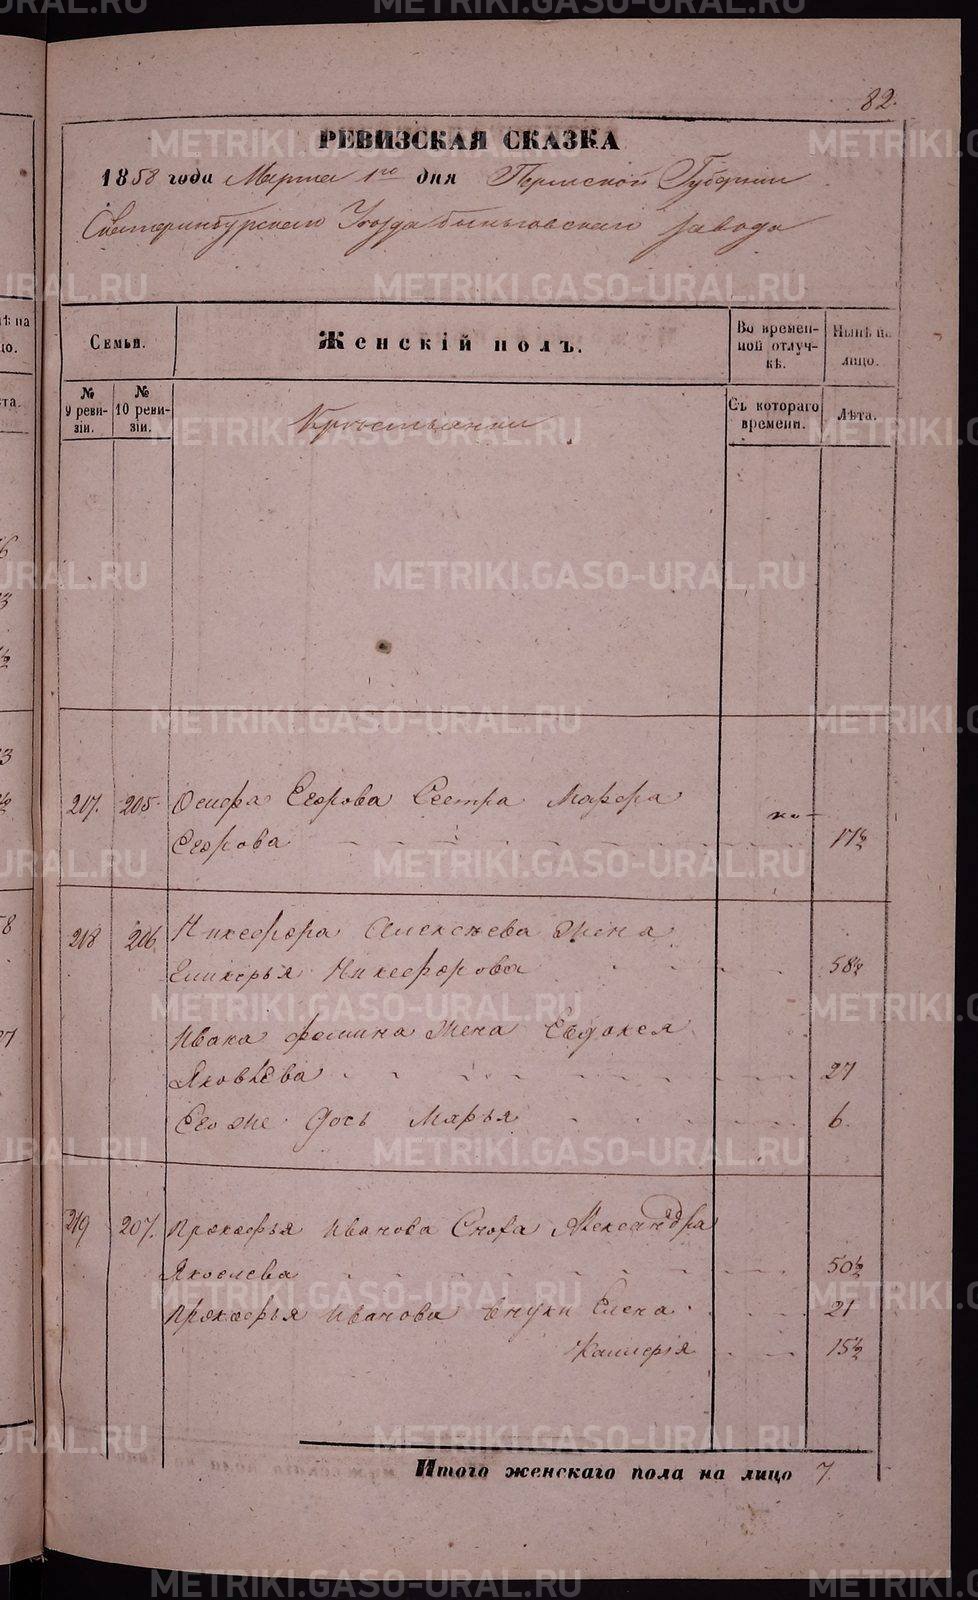 82.
РЕВИЗСКАЯ СКАЗКА
1858 года Марта 1го дня Пермской Губернии
Екатеринбурскаго Уезда Быньговскаго завода
Семьи.
Женскій полъ.
Во времен-
ной отлуч-
кѣ.
Нынѣ на
лицо.
№
9 реви-
зіи.
№
10 реви-
зіи.
Съ котораго
времени.
Лѣта.
Крестьянки
217. 205. Осифа Егорова Сестра Марфа
Егорова 17½
218 206 Никефора Алексѣева жена
Гликерья Никефорова 58½
Ивана Фомина жена Евдокея
Яковлева 27
Его же дочь Марья 6.
219 207. Прокофья Иванова Сноха Александра
Яковлева 50½
Прокофья Иванова внуки Елена 21
15½
Итого женскаго пола на лицо 7.
METRIKI.GASO-URAL.RU